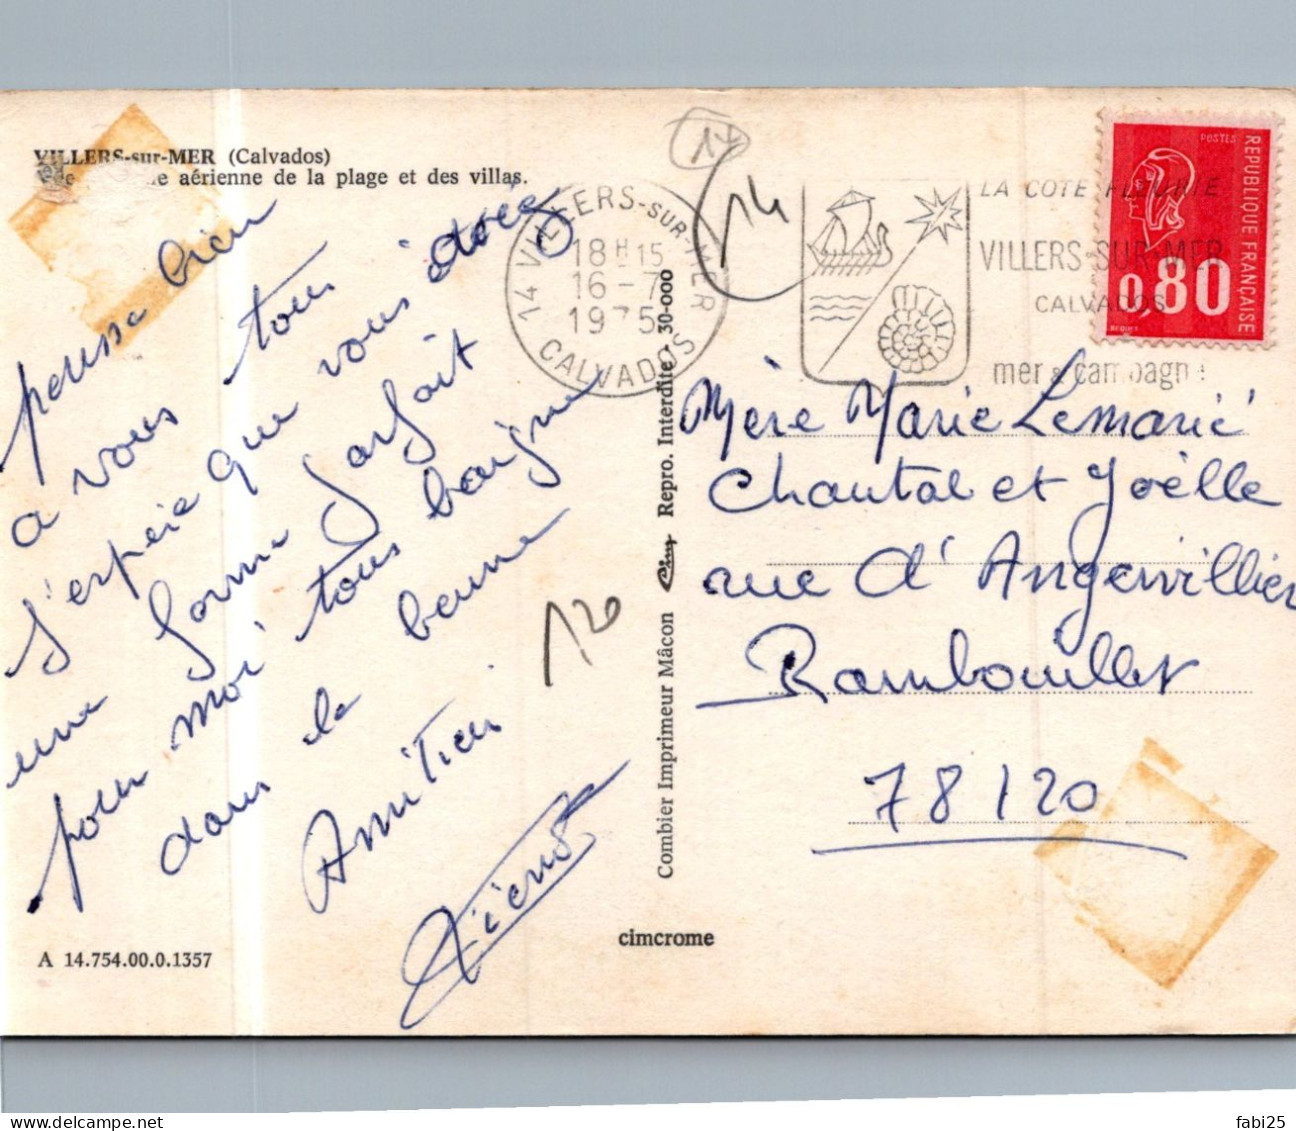 VILLERS-sur-MER (Calvados)
aérienne de la plage et des villas.
pense bien
a vous tous
J'espère que vous êtes
une forme parfait
pour moi tous baigne
dans le beurre
Amitien
A 14.754.00.0.1357
14 VILLERS-SUR-MER
18H15
16-7
1975
CALVADOS
14
14
LA COTE FLEURIE
VILLERS-SUR-MER
CALVADOS
mer & campagne
POSTES
REPUBLIQUE FRANÇAISE
0,80
BEQUET
Combier Imprimeur Mâcon Cim Repro. Interdite - 30-000
120
cimcrome
Mère Marie Lemarié
Chantal et Joëlle
rue d'Angervillier
Rambouillet
78120
fabi25